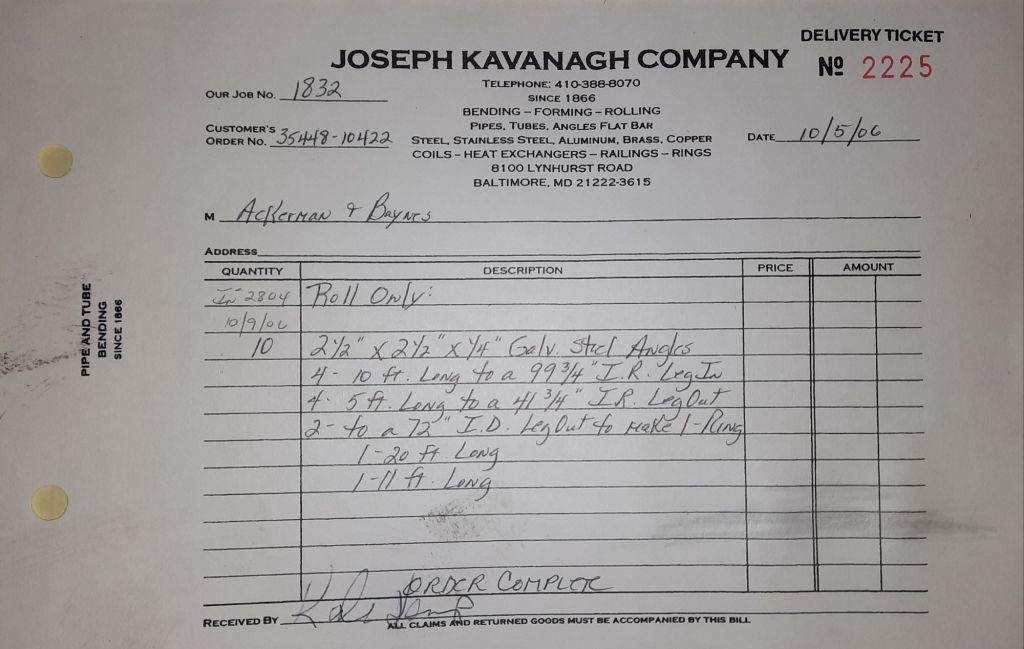 DELIVERY TICKET
JOSEPH KAVANAGH COMPANY
Nº 2225
TELEPHONE: 410-388-8070
SINCE 1866
OUR JOB NO. 1832
BENDING – FORMING – ROLLING
PIPES, TUBES, ANGLES FLAT BAR
CUSTOMER'S ORDER NO. 35448-10422
STEEL, STAINLESS STEEL, ALUMINUM, BRASS, COPPER
DATE 10/5/06
COILS – HEAT EXCHANGERS – RAILINGS – RINGS
8100 LYNHURST ROAD
BALTIMORE, MD 21222-3615
M Ackerman & Baynes
ADDRESS
QUANTITY DESCRIPTION PRICE AMOUNT
In# 2804 Roll Only:
10/9/06
10 2 1/2" x 2 1/2" x 1/4" Galv. Steel Angles
4 - 10 ft. Long to a 99 3/4" I.R. Leg In
4 - 5 ft. Long to a 41 3/4" I.R. Leg Out
2 - to a 72" I.D. Leg Out to make 1-Ring
1-20 ft Long
1-11 ft. Long
ORDER COMPLETE
RECEIVED BY
ALL CLAIMS AND RETURNED GOODS MUST BE ACCOMPANIED BY THIS BILL
PIPE AND TUBE
BENDING
SINCE 1866